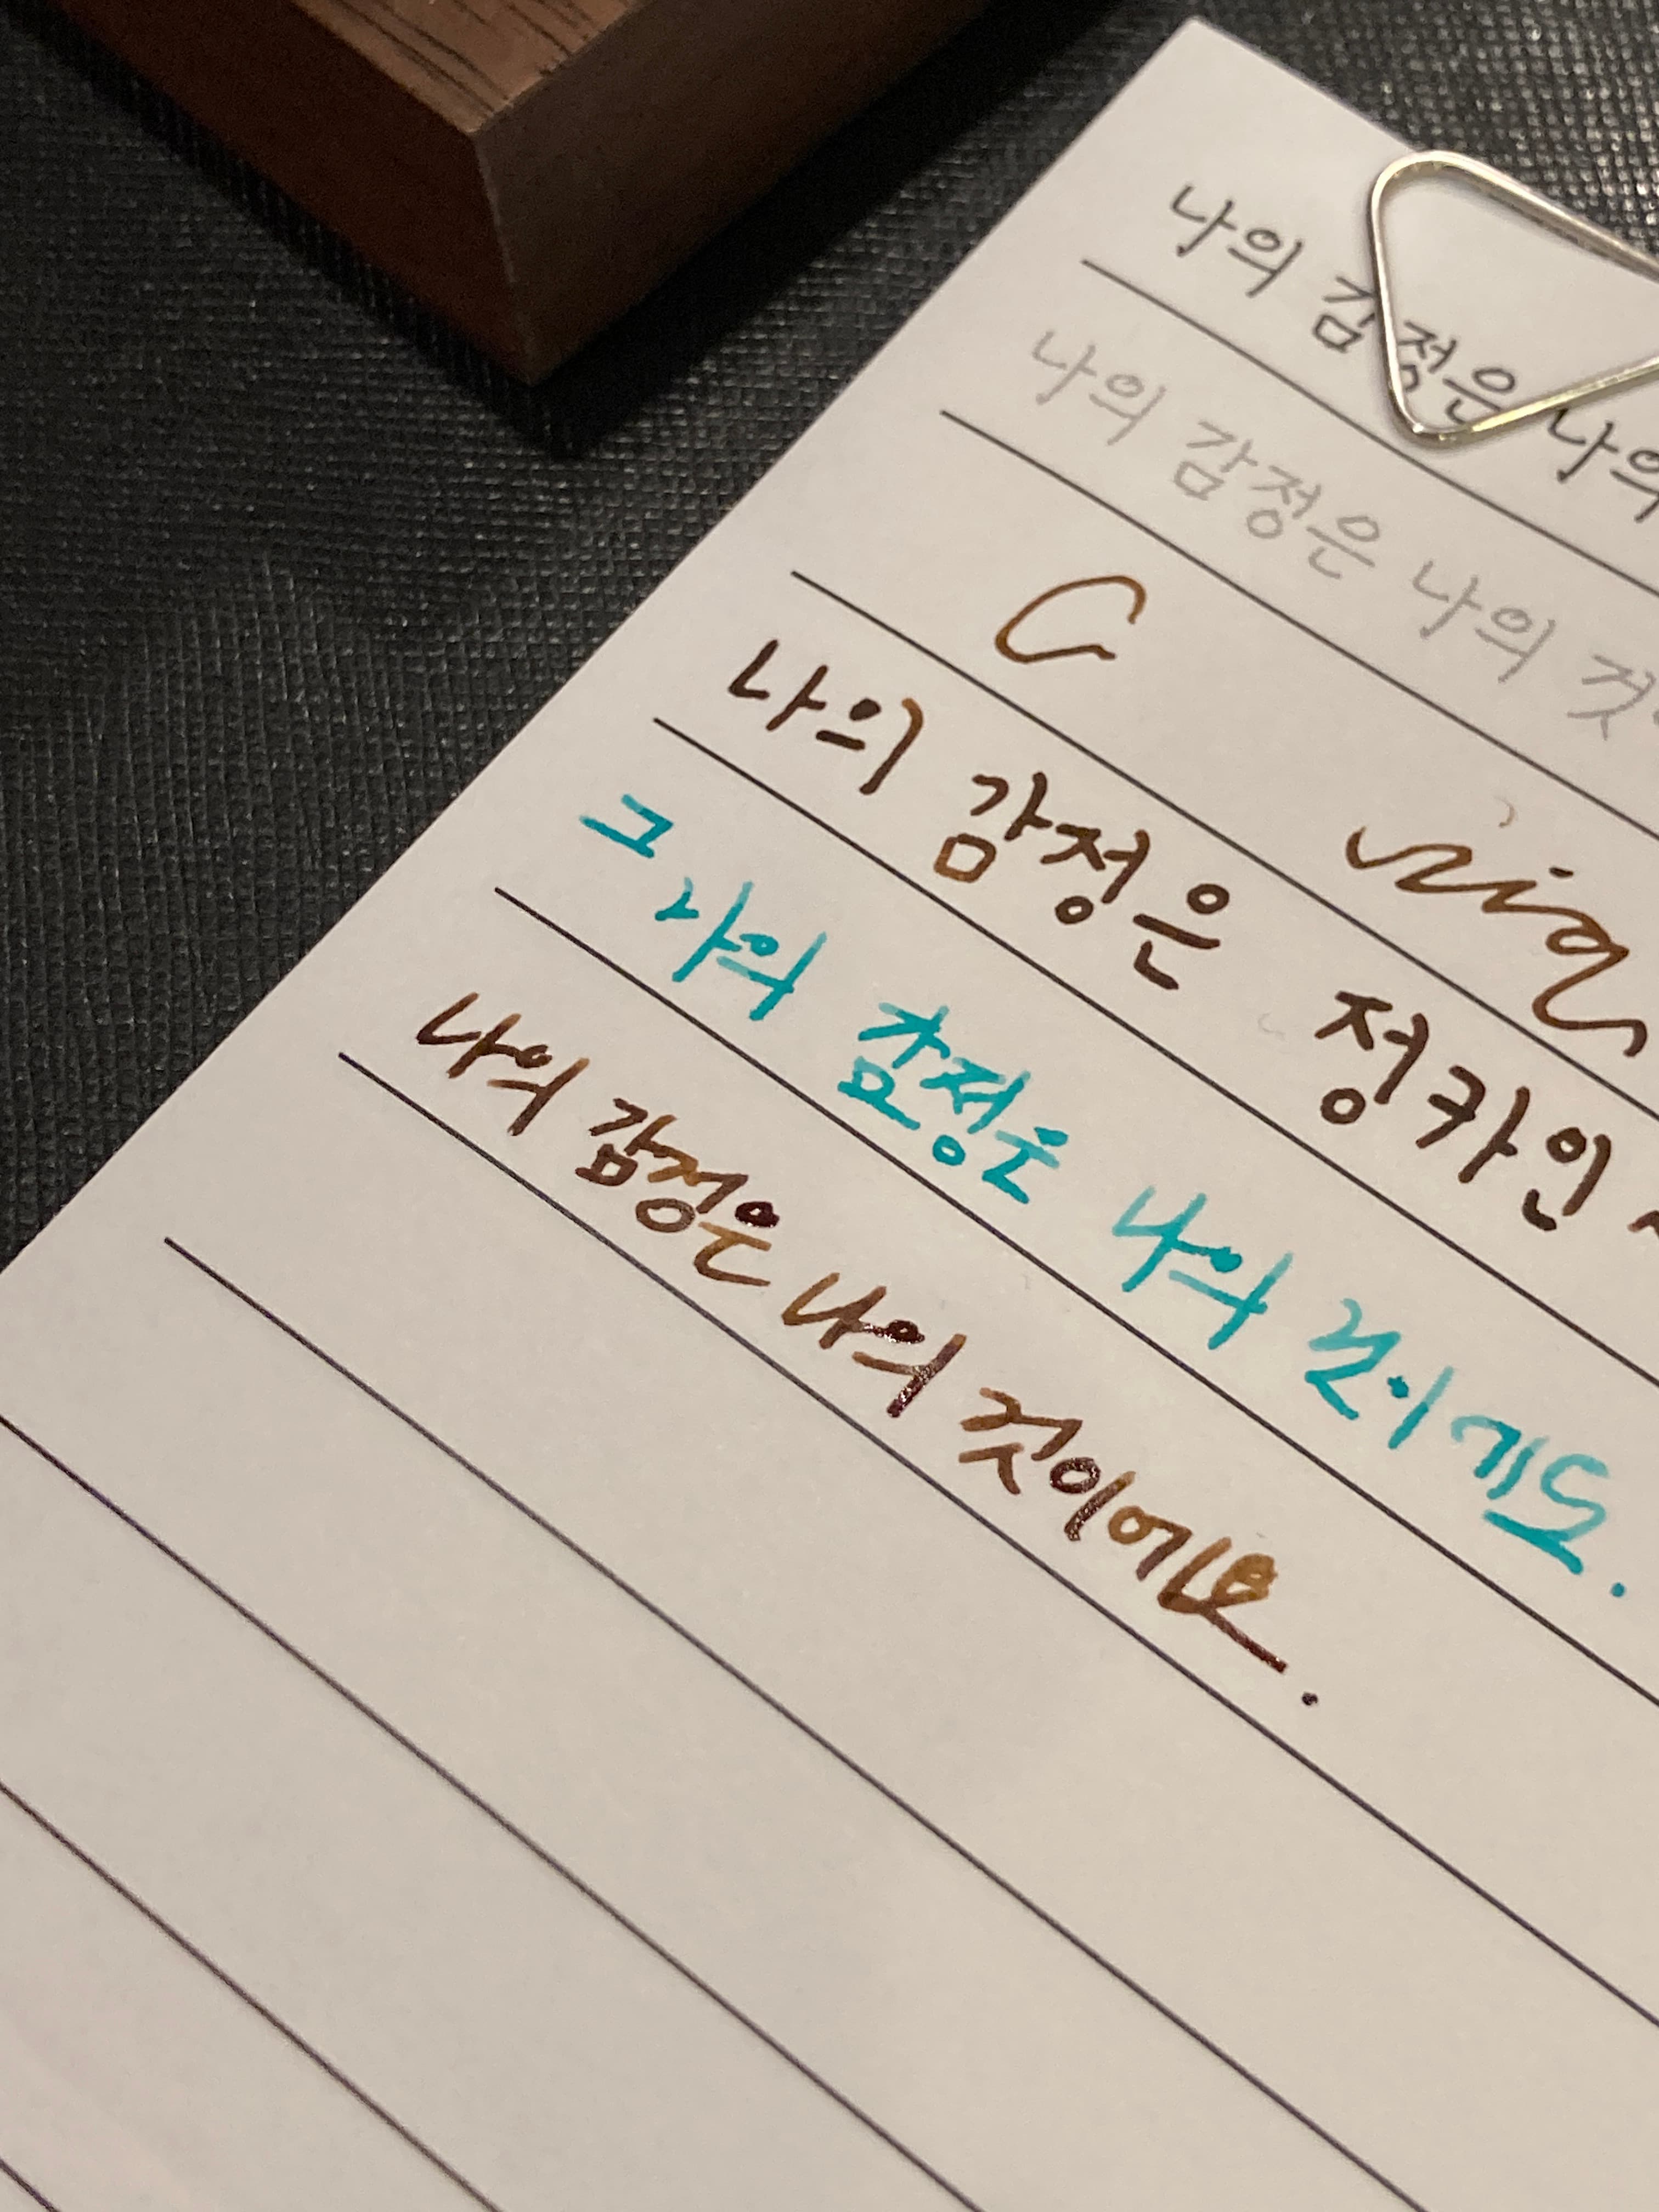 나의 감정은 나의
나의 감정은 나의 것
나의 감정은 정카인
그
나의 감정은 나의 것이기도.
나의 감정은 나의 것이에요.